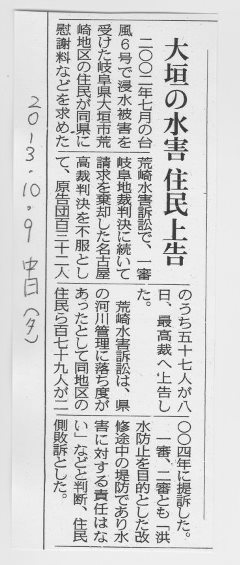 大垣の水害 住民上告
二〇〇二年七月の台
風6号で浸水被害を
受けた岐阜県大垣市荒
崎地区の住民が同県に
慰謝料などを求めた
荒崎水害訴訟で、一審
岐阜地裁判決に続いて
請求を棄却した名古屋
高裁判決を不服とし
て、原告団百三十二人
のうち五十七人が八
日、最高裁へ上告し
た。
荒崎水害訴訟は、県
の河川管理に落ち度が
あったとして同地区の
住民ら百七十九人が二
〇〇四年に提訴した。
一審、二審とも「洪
水防止を目的とした改
修途中の堤防であり水
害に対する責任はな
い」などと判断、住民
側敗訴とした。
2013.10.9 中日(夕)